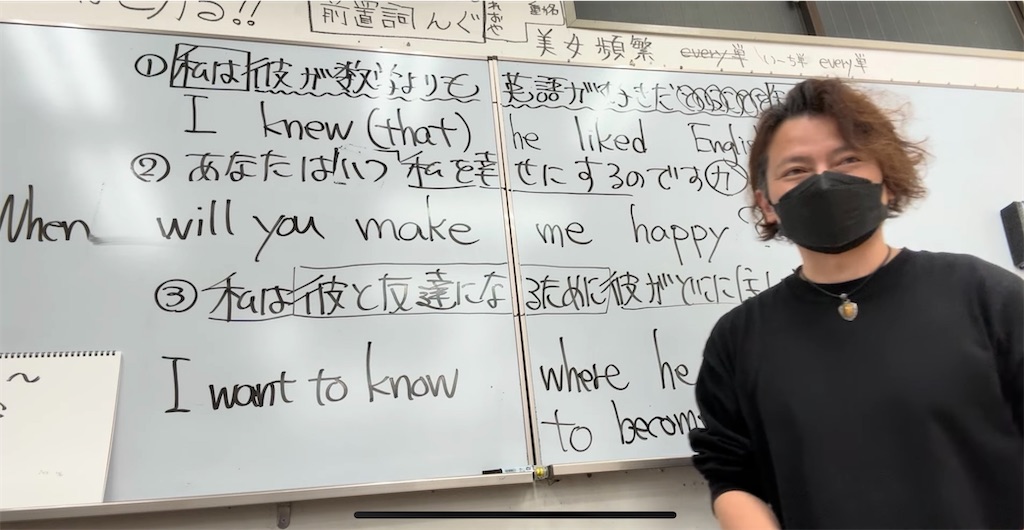 前置詞 んぐ
美女頻繁 every単 いっち単 every単
①私は彼が数学よりも英語が好きだ
I knew (that) he liked Englis
②あなたはいつ私を幸せにするのですか
When will you make me happy?
③私は彼と友達になるために彼がどこに住
I want to know where he
to becom